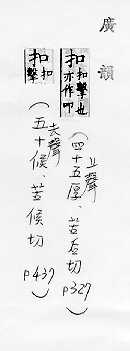 廣韻
扣 扣擊也亦作叩
上聲
(四十五厚、苦后切 p327)
扣 扣擊
去聲
(五十候、苦候切 p437)